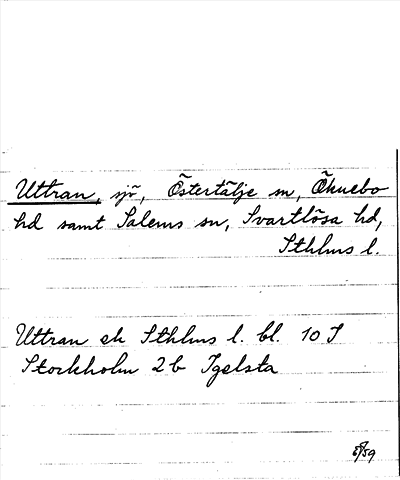 Uttran, sjö, Östertälje sn, Öknebo
hd samt Salems sn, Svartlösa hd,
Sthlms l.
Uttran ek Sthlms l. bl. 10 S
Stockholm 2b Igelsta